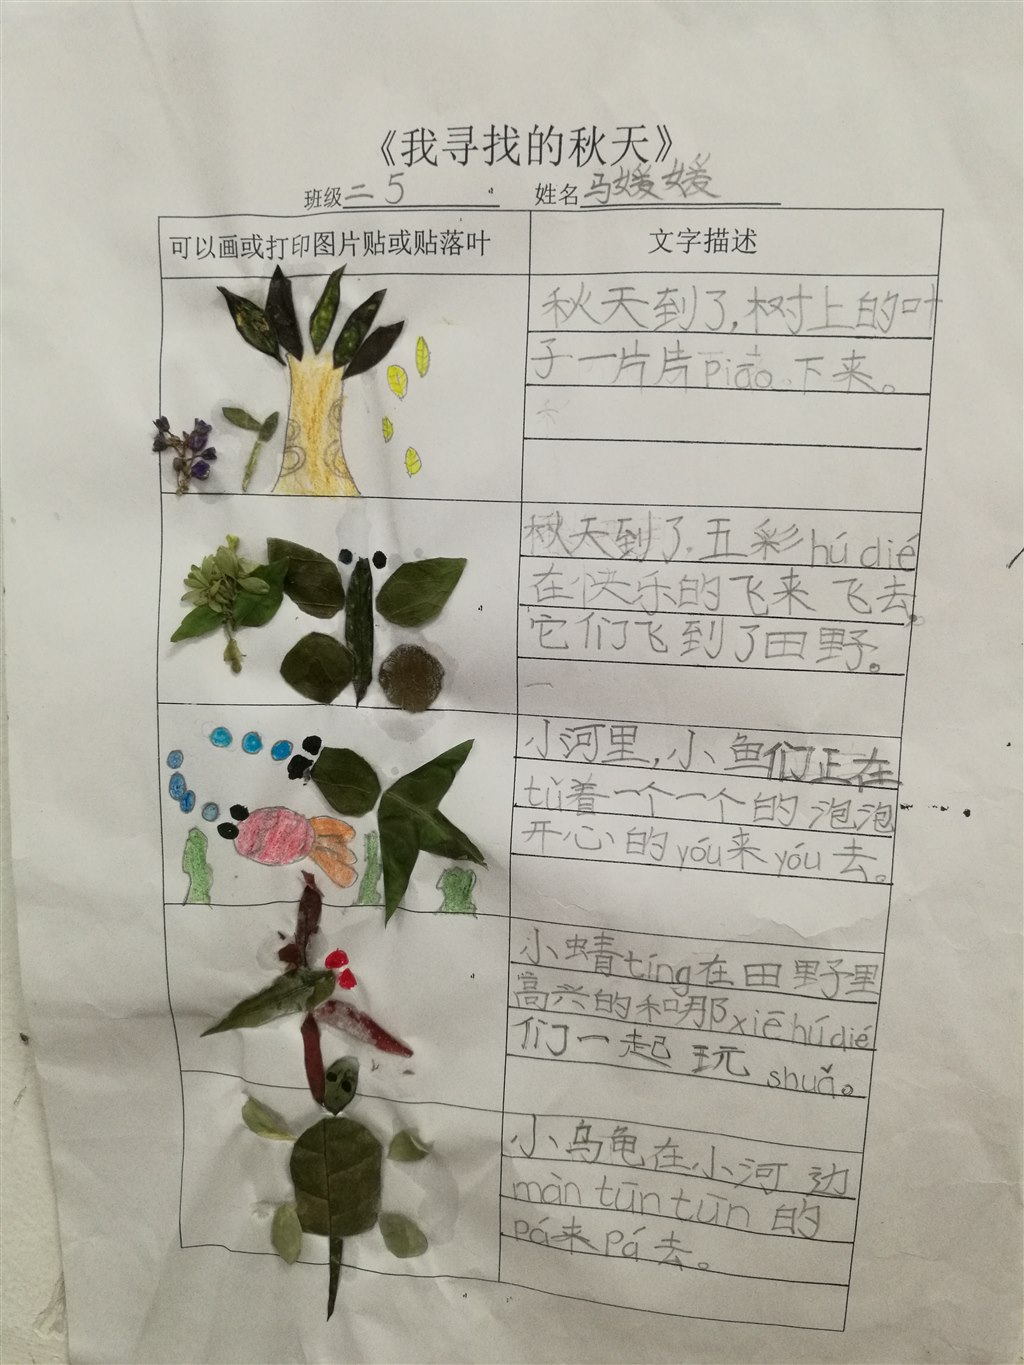 《我寻找的秋天》
班级二5 姓名马媛媛
可以画或打印图片贴或贴落叶
文字描述
秋天到了,树上的叶
子一片片piāo下来。
秋天到了,五彩hú dié
在快乐的飞来飞去。
它们飞到了田野。
小河里,小鱼们正在
tǔ着一个一个的泡泡
开心的yóu来yóu去。
小蜻tíng在田野里
高兴的和那xiē hú dié
们一起玩shuǎ。
小乌龟在小河边
màn tūn tūn的
pá来pá去。